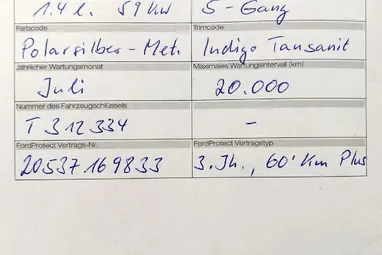 1.4 l. 59 kW 5-Gang
Farbcode Trimcode
Polarsilber-Met. Indigo Tansanit
Jährlicher Wartungsmonat Maximales Wartungsintervall (km)
Juli 20.000
Nummer des Fahrzeugschlüssels
T312334 -
FordProtect Vertrags-Nr. FordProtect Vertragstyp
20537169833 3. Jh., 60' Km Plus